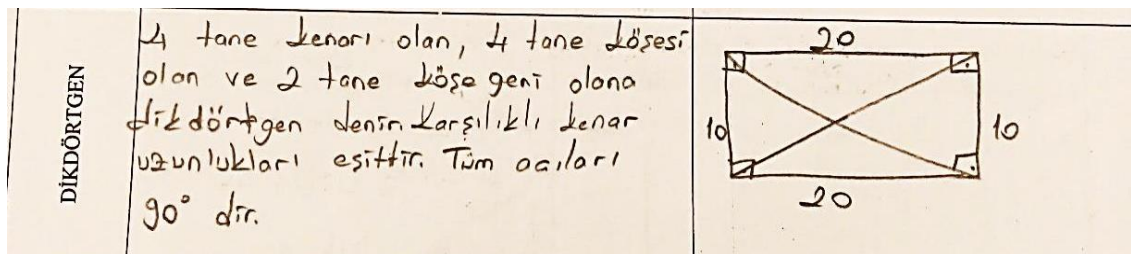 DİKDÖRTGEN
4 tane kenarı olan, 4 tane köşesi
olan ve 2 tane köşe geni olana
dikdörtgen denir. Karşılıklı kenar
uzunlukları eşittir. Tüm açıları
90° dir.
20
10
10
20